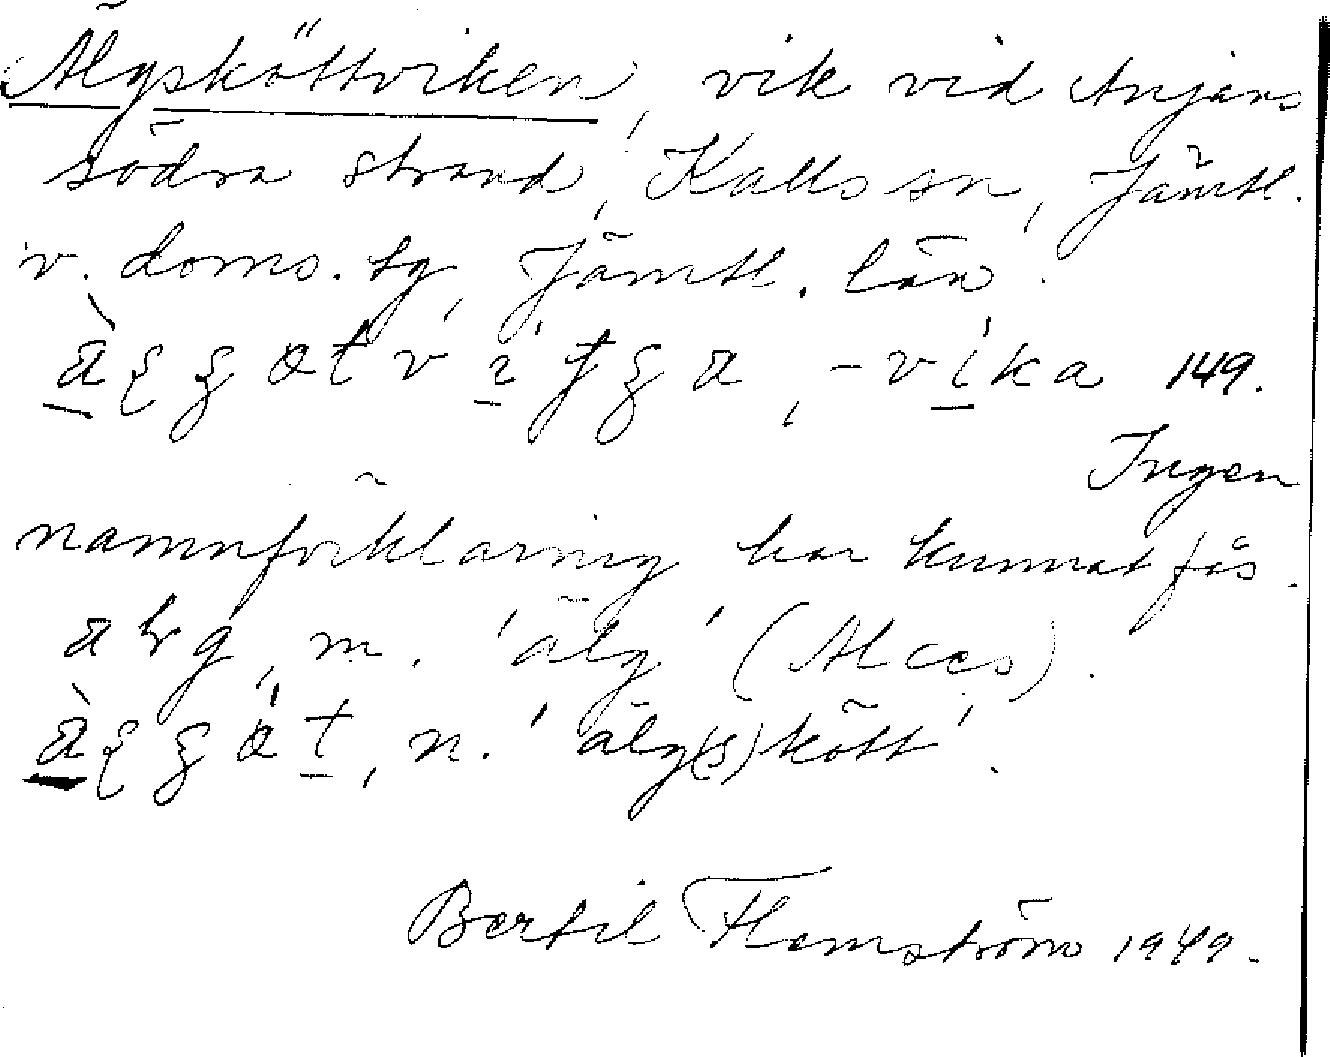 Älgsköttviken, vik vid Anjans
södra strand, Kalls sn, Jämtl.
v. doms. sg, Jämtl. län.
-vika 149.
Ingen
namnförklaring har kunnat fås.
m. 'älg' (Alces).
n. 'älg(s)kött'.
Bertil Flemström 1949.